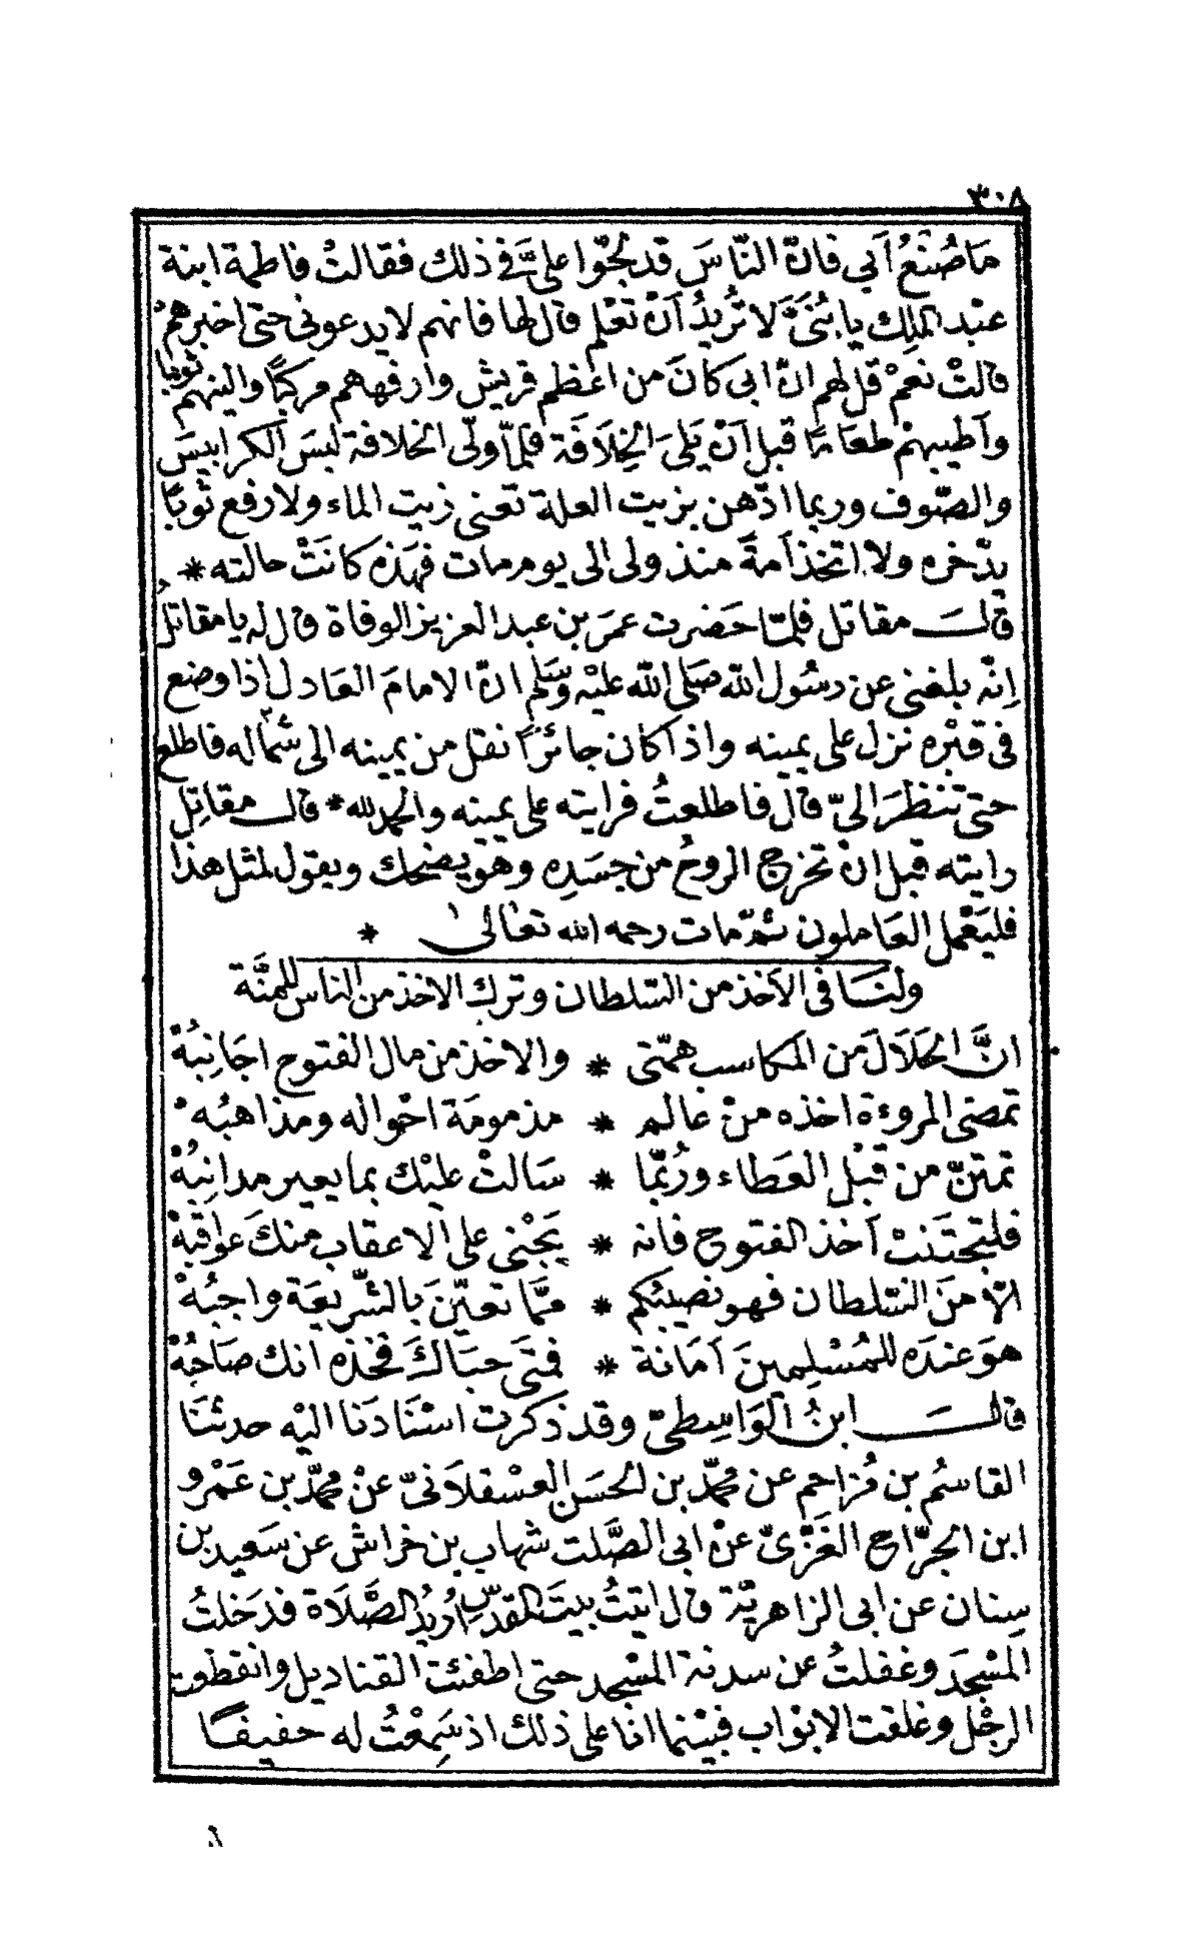 ٣٠٨
مَا صُنْعُ أبي فانّ النّاسَ قد نجوّا علىَّ في ذلك فقالتْ فاطمة ابنة
عبْد الملِك يا بُنَىَّ لا تُريدُ أنْ تعْلم قال لها فانهم لا يدعونى حتى اخبرهمُ
قالتْ نعمْ قل لهم انّ ابى كانَ من اعظم قريش وارفههم مركبًا والينهم ثوبا
وأطيبهمْ طعامًا قبل أنْ يَلىَ الخِلاَفَة فلمّا ولّى الخلافة لبسَ الكرابيسَ
والصّوف وربما ادّهن بزيت العلة تعنى زيت الماء ولا رفع ثوبًا
يدّخره ولا اتخذ أمةً منذ ولى الى يوم مات فهذه كانَتْ حالته *
قالــ مقاتل فلمّا حَضرت عمرَ بن عبد العزيز الوفاة قال له يا مقاتلُ
اِنّه بلغنى عن رسُول الله صَلى الله عليْه وَسَلم انّ الامامَ العَادل اذا وضع
فى قبْره نزل على يمينه واذا كان جائرًا نقل من يمينه الى شماله فاطلع
حتى تنظرَ الىّ قال فاطلعتُ فرايته على يمينه والحمد لله * قالــ مقاتِل
رايته قبل انْ تخرج الروحُ من جسَدِه وهوَ يضحك ويقول لمثل هذا
فليَعْمل العَاملون ثمّ مات رحمه الله تعالى *
ولنــا فى الأخذ من السّلطان وترك الاخذ من الناس للمنَّة
انَّ الحَلاَلَ من المَكاسب همّتى * والاخذ من مال الفتوح اجَانِبُهْ
تمضى المروءة اخذه منْ عالم * مذمومَة احْواله ومذاهبُهْ
تمتنّ من قبْل العَطاء ورُبّما * سَالتْ عليْك بما يعيبر مدانِبُهْ
فلتجتَنبْ أخذ الفتوح فانه * يَجْنى على الاعقاب منكَ عواقبُهْ
الاّ منَ السّلطان فهو نصيبُكم * ممَّا تعيّنَ بالشّريعَة واجبُهْ
هوَ عندَه للمُسْلِمينَ أمَانة * فمتَى حبَاكَ فخذه انك صَاحبُهْ
قالــ ابنُ الوَاسِطىّ وقد ذكرت اسْنادَنا اليْه حدثنَا
القاسُم بن مُزاحِم عن محمّد بن الحسَن العسْقلاَنىّ عنْ محمّد بن عَمْرو
ابن الجرّاح الغَزّىّ عنْ ابى الصَّلت شهاب بن خراش عن سَعيد بن
سِنان عن ابى الزاهريّة قال اتيتُ بيتَ المقدسِ اُريدُ الصَّلاَة فدَخلتُ
المسْجدَ وغفلتُ عن سدنة المسْجد حتى اطفئت القناديل وانقطعت
الرجْل وغلقت الابْواب فبيْنما انا على ذلك اذ سَمِعْتُ له حفيفًا